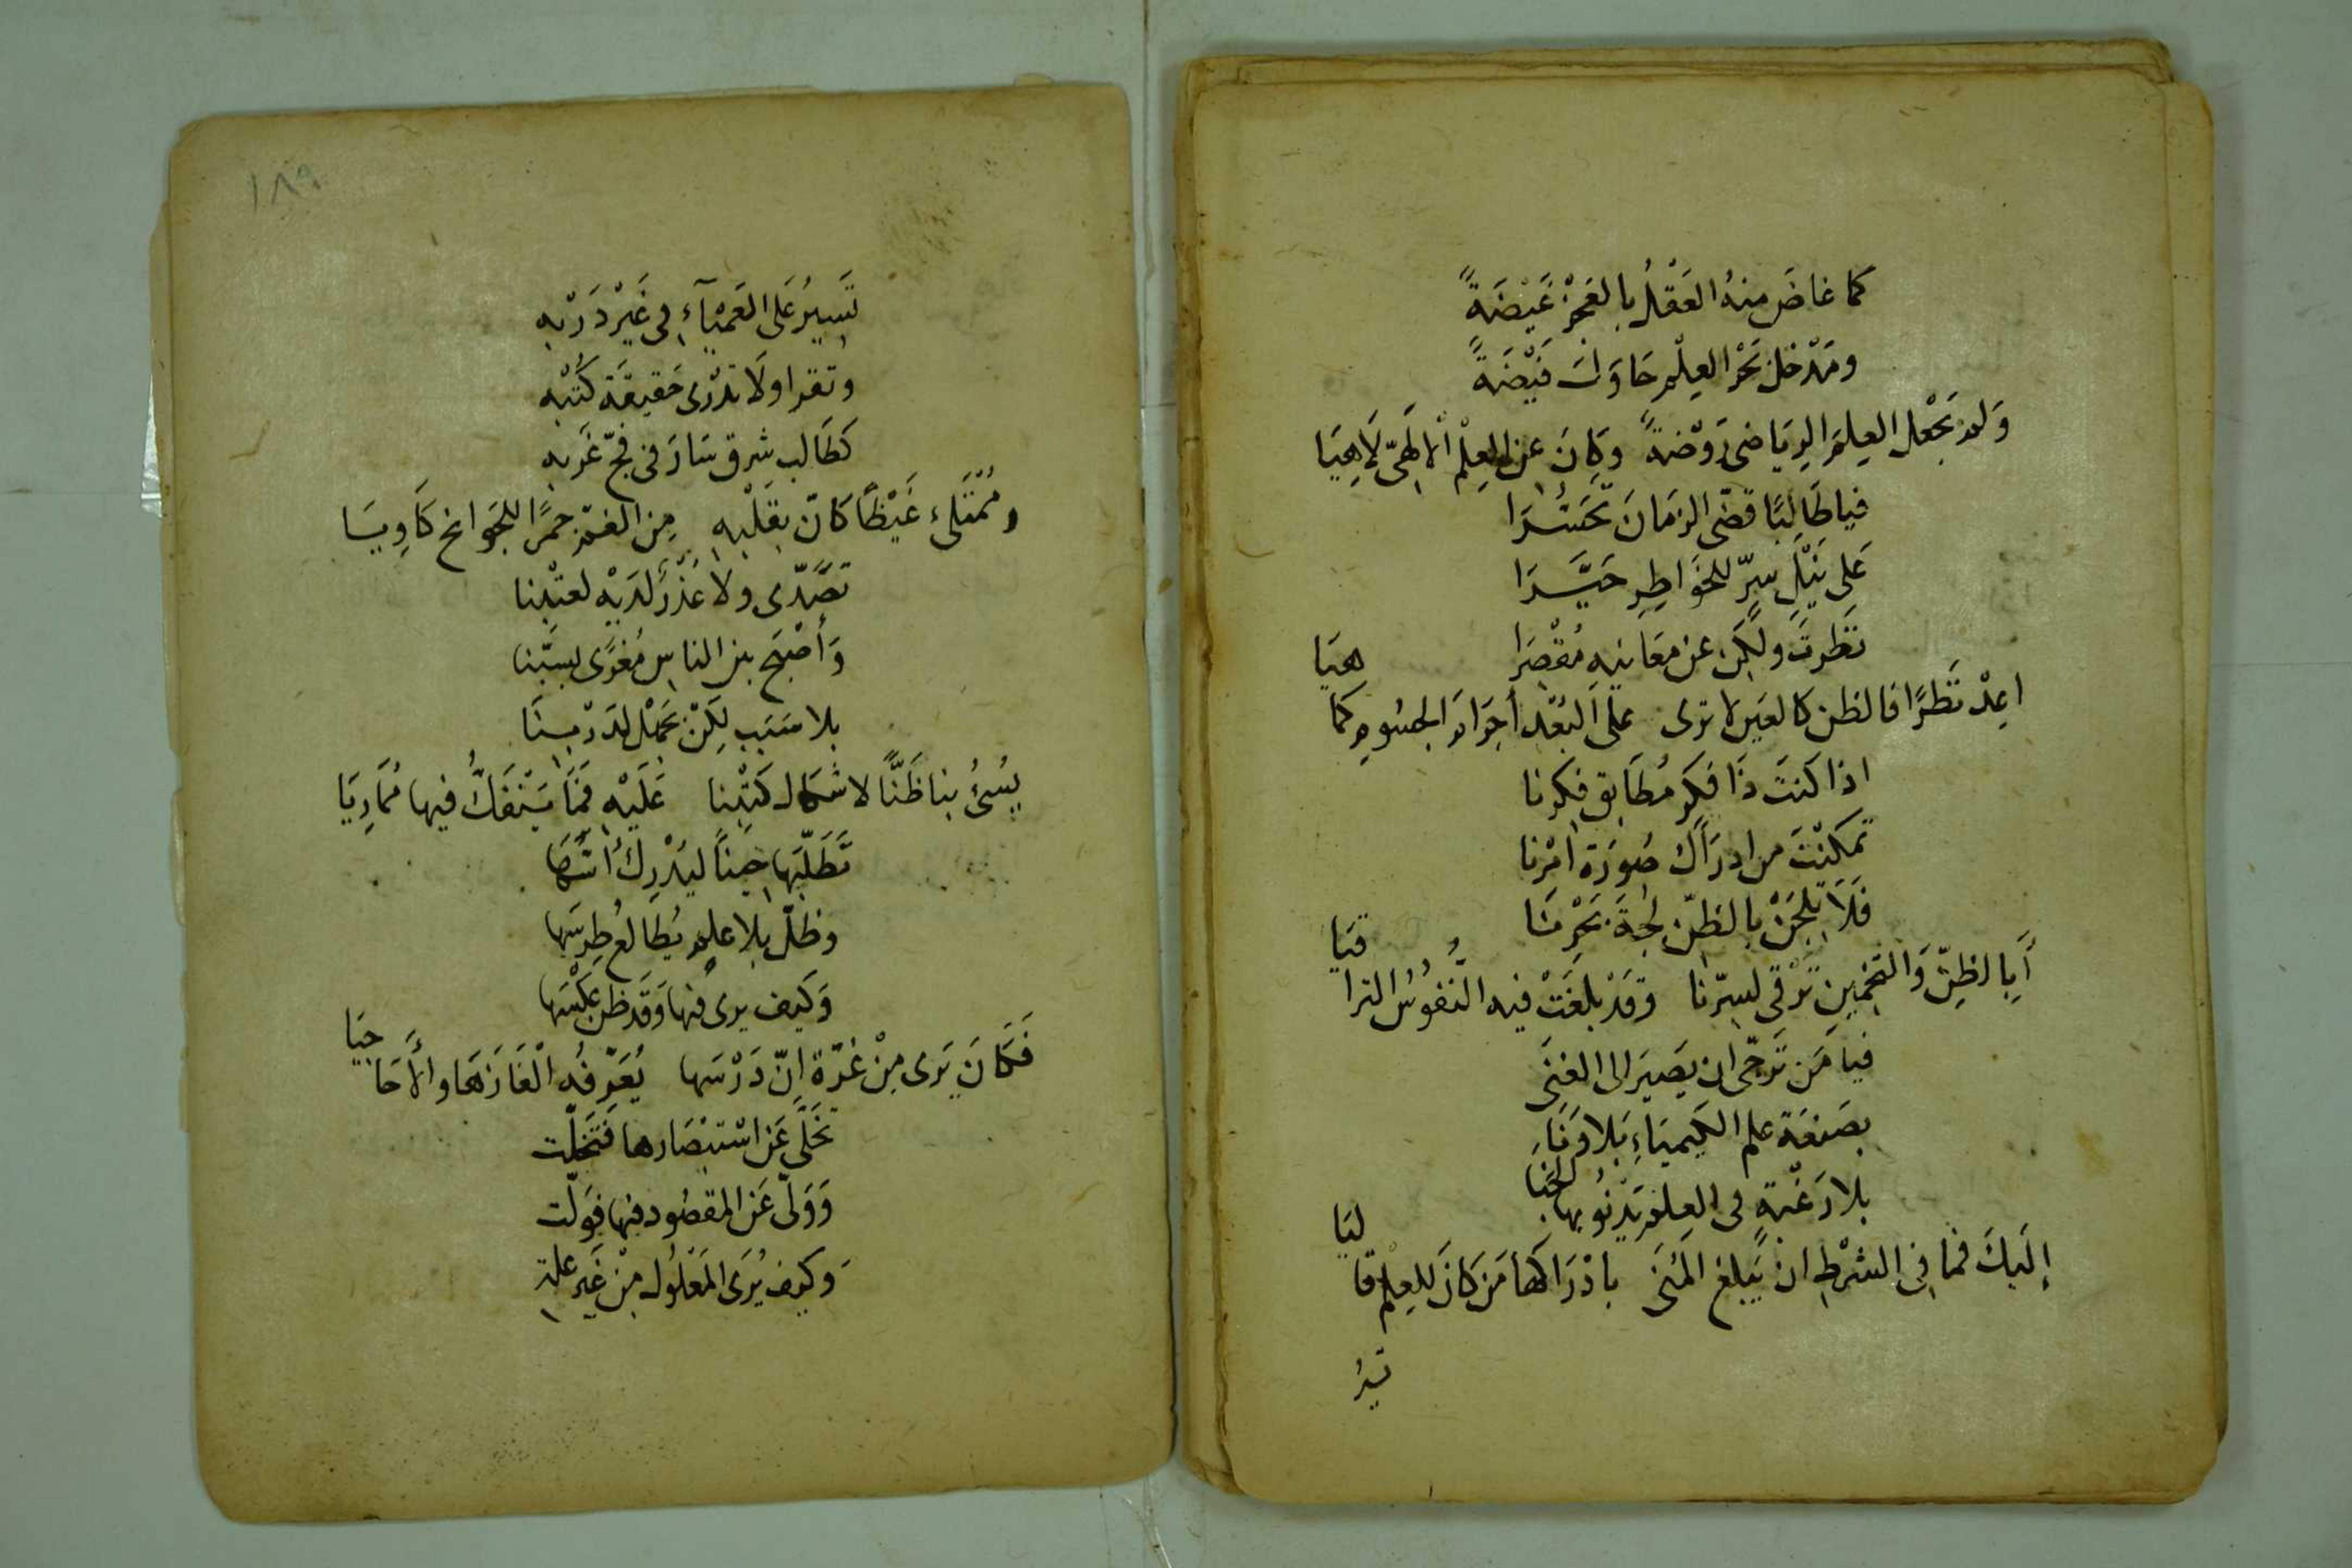 كما غاضَ منهُ العَقْلُ بالعَجْزِ غَيْضَةً
ومَدْخل بَحْر العِلْمِ حَاوَلتَ فَيْضَةً
وَلم تَجْعل العِلمَ الرِيَاضى رَوْضةً وكَانَ عن العِلْم الالَهِىّ لَاهِيَا
فيا طَالِبًا قضّى الزمَانَ تَحَسُّرَا
عَلى نَيْلِ سِرّ للخَوَاطِرِ حَيَّرَا
نَظرتَ ولكن عن مَعَانيهِ مُقْصَرَا
اعِدْ نَظرًا فالظن كالعَين لا ترى عَلى البُعْد أجرَامَ الجسُومِ كما هيَا
اذا كنتَ ذَا فكرٍ مُطَابق فكرنا
تمكنْتَ من ادرَاك صُورَة امْرنا
فَلَا تلِجَنْ بالظنّ لجةَ بَحْرِنَا
أَبِالظنِّ وَالتخمينِ تَرْقى لسِرّنا وقَدْ بلغَتْ فيه النُفوُسُ التراقيَا
فيا مَن تَرجّى ان يَصيرَ الى الغِنَى
بصَنعَة علم الكيميَاءِ بَلا وَنَا
بلا رَغْبةٍ فى العِلم يَدْنُو بها الجَنَا
إليَكَ فما فى الشرْطِ ان يَبلغ المُنَى بادْرَاكهَا مَن كَانَ للعِلْم قاليَا
تسيرُ
١٨٩
تَسِيرُ عَلى العَميْآءِ فى غَيْر دَرْبهِ
وتقرا ولَا تدْرى حَقيقَة كُتْبهِ
كَطَالب شرق سَارَ فى فجّ غَربهِ
ومُمْتَلىء غَيْظًا كَانّ بقَلْبهِ مِن الغمّ جمرًا للجَوانح كَاوِيَا
تصَدّى ولا عُذْرٌ لدَيْه لعتْبنا
وَأصْبَح بين الناس مُغرًى بسَبّنا
بلا سَبَب لكِنْ
يُسئُ بنا ظَنًّا لاشكال كتْبنا عَلَيْهِ فمَا يَنْفَكُّ فيها مُمَارِيَا
تَطَلّبَها حِينًا ليُدْرِكَ أُسَّهَا
وظلّ بلا علمٍ يُطَالعُ طِرسَها
وَكيف يرى فيها وَقد ظن عكْسَهَا
فَكَانَ يَرى مِنْ غرّة انّ دَرْسَها يُعَرّفهُ الْغَازهَا والأَحَاجيَا
تخَلّى عَن اسْتبْصَارها فَتَخَلّت
وَوَلّى عَن المقصُود فيها فوَلّت
وَكيف يُرَى المعْلوُل مِنْ غَير علة